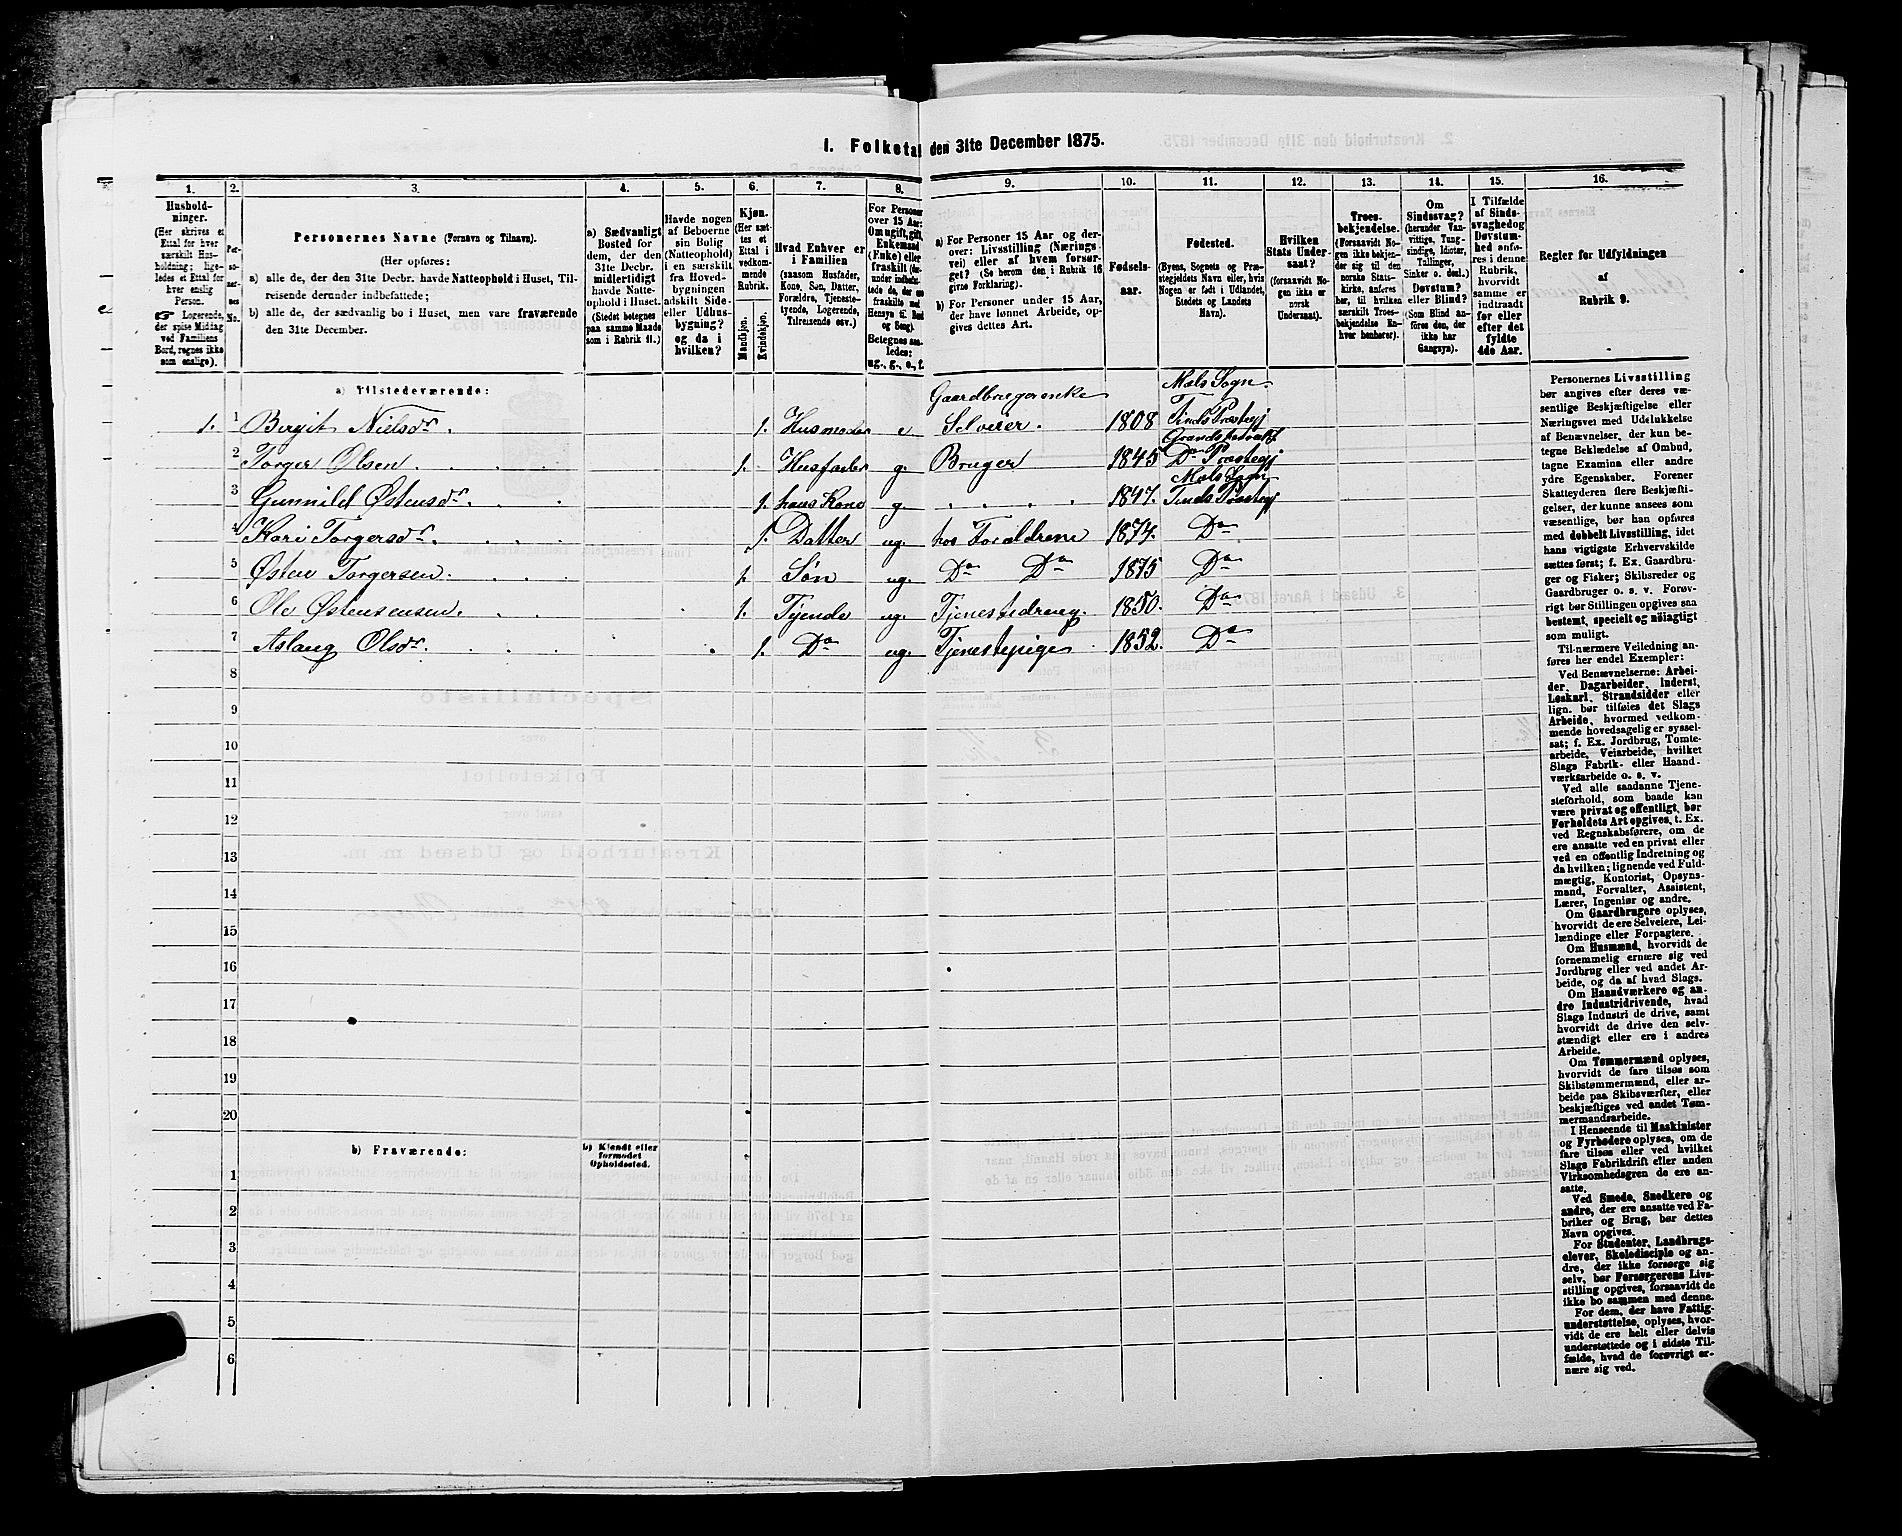 1. Folketal den 31te December 1875.
1. 2. 3. 4. 5. 6. 7. 8. 9. 10. 11. 12. 13. 14. 15. 16.
Hushold-
ninger.
(Her skrives et
Ettal for hver
særskilt Hus-
holdning; lige-
ledes et Ettal for
hver enslig
Person.
☞ Logerende,
der spise Middag
ved Familiens
Bord, regnes ikke
som enslige).
Per-
so-
ner-
nes
No.
Personernes Navne (Fornavn og Tilnavn).
(Her opføres:
a) alle de, der den 31te Decbr. havde Natteophold i Huset, Til-
reisende derunder indbefattede;
b) alle de, der sædvanlig bo i Huset, men vare fraværende
den 31te December.
a) Sædvanligt
Bosted for
dem, der den
31te Decbr.
midlertidigt
havde Natte-
ophold i Huset.
(Stedet betegnes
paa samme Maade
som i Rubrik 11.)
Havde nogen
af Beboerne
sin Bolig
(Natteophold)
i en særskilt
fra Hoved-
bygningen
adskilt Side-
eller Udhus-
bygning?
og da i
hvilken?
Kjøn.
(Her sæt-
tes et
Ettal i
vedkom-
mende
Rubrik.
Mandkjøn.
Kvindekjøn.
Hvad Enhver er
i Familien
(saasom Husfader,
Kone, Søn, Datter,
Forældre, Tjeneste-
tyende, Logerende,
Tilreisende osv.)
For Personer
over 15 Aar:
Om ugift, gift,
Enkemand
(Enke) eller
fraskilt
Hensyn til Bord
og Seng).
Betegnes saa-
ledes:
ug., g., e., f.
a) For Personer 15 Aar og der-
over: Livsstilling (Nærings-
vei) eller af hvem forsør-
get? (Se herom den i Rubrik 16
givne Forklaring).
b) For Personer under 15 Aar,
der have lønnet Arbeide, op-
gives dettes Art.
Fødsels-
aar.
Fødested.
(Byens, Sognets og Præ-
stegjeldets Navn eller, hvis
Nogen er født i Udlandet,
Stedets og Landets
Navn).
Hvilken
Stats Under-
saat?
(forsaavidt No-
gen ikke er
norsk
Undersaat).
Troes-
bekjendelse.
(Forsaavidt No-
gen ikke bekjen-
der sig til den
norske Stats-
kirke, anføres
her, til hvilken
Troes-
bekjendelse En-
hver henhører).
Om
Sindssvag?
(herunder Van-
vittige, Tung-
sindige, Idioter,
Tullinger,
Sinker o. desl.)
Døvstum?
eller Blind?
(Som Blind an-
føres den, der
ikke har
Gangsyn).
I Tilfælde
af Sinds-
svaghed og
Døvstum-
hed anfø-
res i denne
Rubrik,
hvorvidt
samme er
indtraadt
før eller
efter det
fyldte
4de Aar.
Regler for Udfyldningen
af
Rubrik 9.
a) Tilstedeværende:
1. 1 Birgit Nielsdr. 1. Husmoder e Gaardbrugerenke Selveier. 1808 Mæls Sogn. Tinds Præstegj
2 Torger Olsen 1. Husfader g. Bruger 1845 Do Præstegj
3 Gunnild Østensdr. 1. hans Kone g. 1847. Mæls Sogn Tinds Præstegj
4 Kari Torgersdr. 1. Datter ug. hos Forældrene 1874. Do
5 Østen Torgersen. 1. Søn ug. Do Do 1875 Do
6 Ole Østensensen. 1. Tyende ug. Tjenestedreng. 1850. Do
7 Aslaug Olsdr. 1. Do ug. Tjenestepige 1852. Do
8
9
10
11
12
13
14
15
16
17
18
19
20
b) Fraværende:
b) Kjendt eller
formodet
Opholdssted.
1
2
3
4
5
6
Personernes Livsstilling
bør angives efter deres væ-
sentlige Beskjæftigelse eller
Næringsvei med Udelukkelse
af Benævnelser, der kun be-
tegne Beklædelse af Ombud,
tagne Examina eller andre
ydre Egenskaber. Forener
Skatteyderen flere Beskjæfti-
gelser, der kunne ansees som
væsentlige, bør han opføres
med dobbelt Livsstilling, idet
hans vigtigste Erhvervskilde
sættes først; f. Ex. Gaardbru-
ger og Fisker; Skibsreder og
Gaardbruger o. s. v. Forøv-
rigt bør Stillingen opgives saa
bestemt, specielt og nøiagtigt
som muligt.
Til nærmere Veiledning an-
føres her endel Exempler:
Ved Benævnelserne: Arbei-
der, Dagarbeider, Inderst,
Løskarl, Strandsidder eller
lign. bør tilføies det Slags
Arbeide, hvormed vedkom-
mende hovedsagelig er syssel-
sat; f. Ex. Jordbrug, Tomte-
arbeide, Veiarbeide, hvilket
Slags Fabrik- eller Haand-
værksarbeide o. s. v.
Ved alle saadanne Tjene-
steforhold, som baade kan
være privat og offentligt, bør
Forholdets Art opgives, t. Ex.
ved Regnskabsførere, om de
ere ansatte ved en privat eller
ved en offentlig Indretning og
da hvilken; lignende ved Fuld-
mægtig, Kontorist, Opsyns-
mand, Forvalter, Assistent,
Lærer, Ingeniør og andre.
Om Gaardbrugere oplyses,
hvorvidt de ere Selveiere, Lei-
lændinge eller Forpagtere.
Om Husmænd, hvorvidt de
fornemmelig ernære sig ved
Jordbrug eller ved andet Ar-
beide, og da af hvad Slags.
Om Haandværkere og an-
dre Industridrivende, hvad
Slags Industri de drive, samt
hvorvidt de drive den selv-
stændigt eller ere i andres
Arbeide.
Om Tømmermænd oplyses,
hvorvidt de fare tilsøs som
Skibstømmermænd, eller ar-
beide paa Skibsværfter, eller
beskjæftiges ved andet Tøm-
mermandsarbeide.
I Henseende til Maskinister
og Fyrbødere oplyses, om de
fare tilsøs eller ved hvilket
Slags Fabrikdrift eller anden
Virksomhedsgren de ere an-
satte.
Ved Smede, Snedkere og
andre, der ere ansatte ved Fa-
briker og Brug, bør dettes
Navn opgives.
For Studenter, Landbrugs-
elever, Skoledisciple og an-
dre, der ikke forsørge sig
selv, bør Forsørgerens Livs-
stilling opgives, forsaavidt de
ikke bo sammen med denne.
For dem, der have Fattig-
understøttelse, oplyses, hvor-
vidt de ere helt eller delvis
understøttede og i sidste Til-
fælde, hvad de forøvrigt er-
nære sig ved.